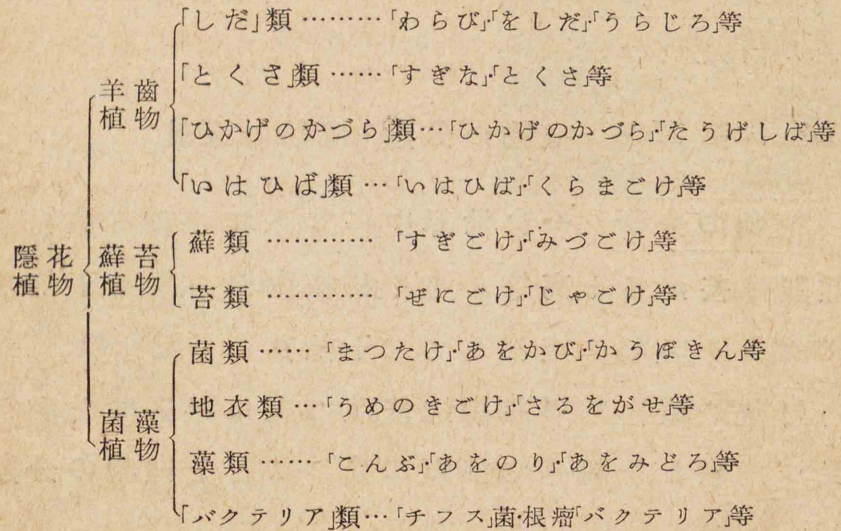 隱花植物
羊齒植物
「しだ」類………「わらび」・「をしだ」・「うらじろ」等
「とくさ」類……「すぎな」・「とくさ」等
「ひかげのかづら」類…「ひかげのかづら」・「たうげしば」等
「いはひば」類…「いはひば」・「くらまごけ」等
蘚苔植物
蘚類…………「すぎごけ」・「みづごけ」等
苔類…………「ぜにごけ」・「じやごけ」等
菌藻植物
菌類……「まつたけ」・「あをかび」・「かうぼきん」等
地衣類…「うめのきごけ」・「さるをがせ」等
藻類……「こんぶ」・「あをのり」・「あをみどろ」等
「バクテリア」類…「チフス」菌・根瘤「バクテリア」等